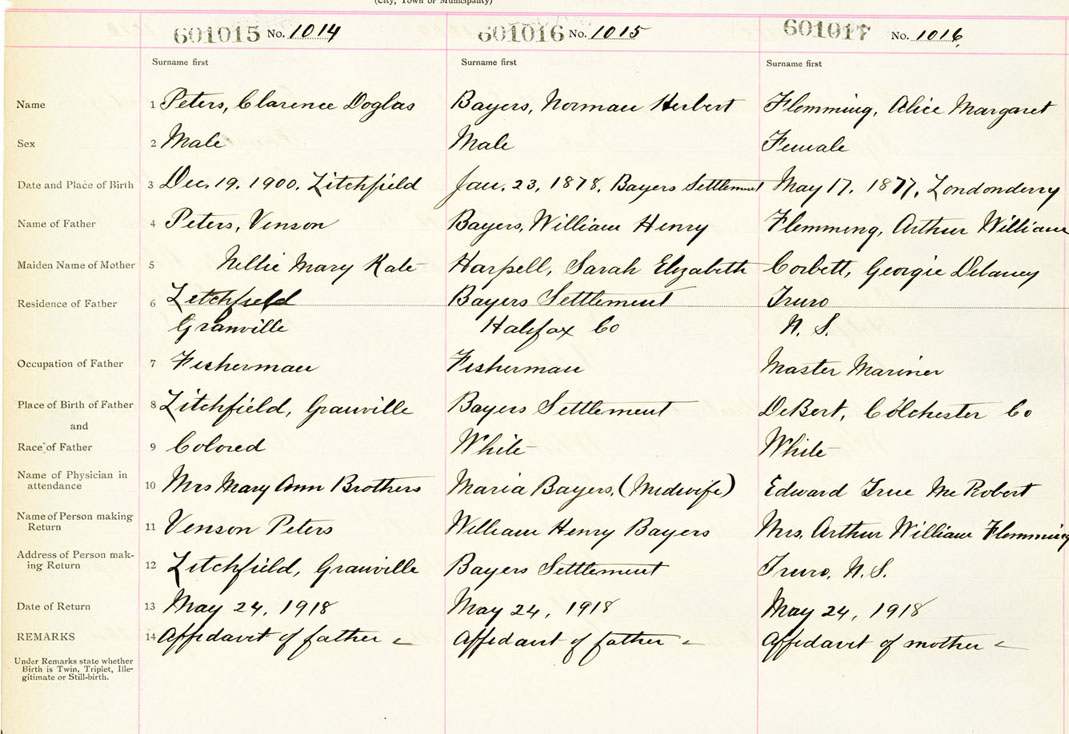 (City, Town or Municipality)
601015 No. 1014 601016 No. 1015 601017 No. 1016
Surname first Surname first Surname first
Name 1 Peters, Clarence Doglas Bayers, Norman Herbert Flemming, Alice Margaret
Sex 2 Male Male Female
Date and Place of Birth 3 Dec. 19, 1900, Litchfield Jan. 23, 1878, Bayers Settlement May 17, 1877, Londonderry
Name of Father 4 Peters, Venson Bayers, William Henry Flemming, Arthur William
Maiden Name of Mother 5 Nellie Mary Kate Harpell, Sarah Elizabeth Corbett, Georgie Delaney
Residence of Father 6 Litchfield Bayers Settlement Truro
Granville Halifax Co N. S.
Occupation of Father 7 Fisherman Fisherman Master Mariner
Place of Birth of Father 8 Litchfield, Granville Bayers Settlement DeBert, Colchester Co
and
Race of Father 9 Colored White White
Name of Physician in
attendance 10 Mrs Mary Ann Brothers Maria Bayers, (Midwife) Edward True McRobert
Name of Person making
Return 11 Venson Peters William Henry Bayers Mrs. Arthur William Flemming
Address of Person mak-
ing Return 12 Litchfield, Granville Bayers Settlement Truro, N.S.
Date of Return 13 May 24, 1918 May 24, 1918 May 24, 1918
REMARKS 14 Affidavit of father Affidavit of father Affidavit of mother
Under Remarks state whether
Birth is Twin, Triplet, Ille-
gitimate or Still-birth.